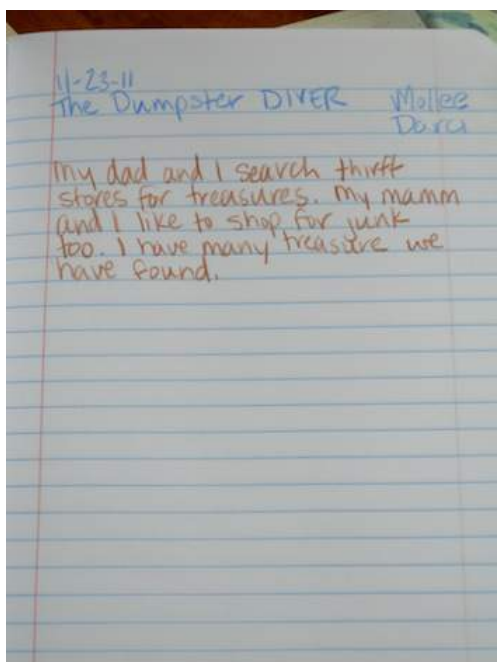 11-23-11
The Dumpster DIVER Mollee
Darci
My dad and I search thirft
stores for treasures. My mamm
and I like to shop for junk
too. I have many treasure we
have found.